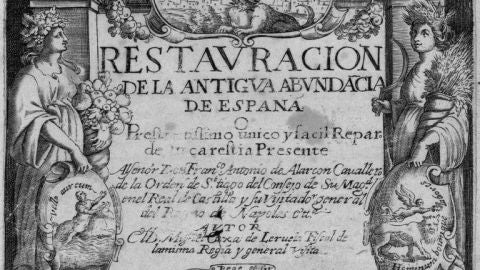 RESTAVRACION
DE LA ANTIGVA ABVNDÃCIA
DE ESPAÑA
O
unico y facil Repar
de carestia Presente
Al señor Don Franco. Antonio de Alarcon Cavallero
de la Orden de Stiago del Consejo de Su Magd.
en el Real de Castilla y su Visitador general
del Reyno de Napoles etc.
AVTOR
Miguel Caxa de Leruela Fiscal de
la misma Regia y general Visita
vellus aureum